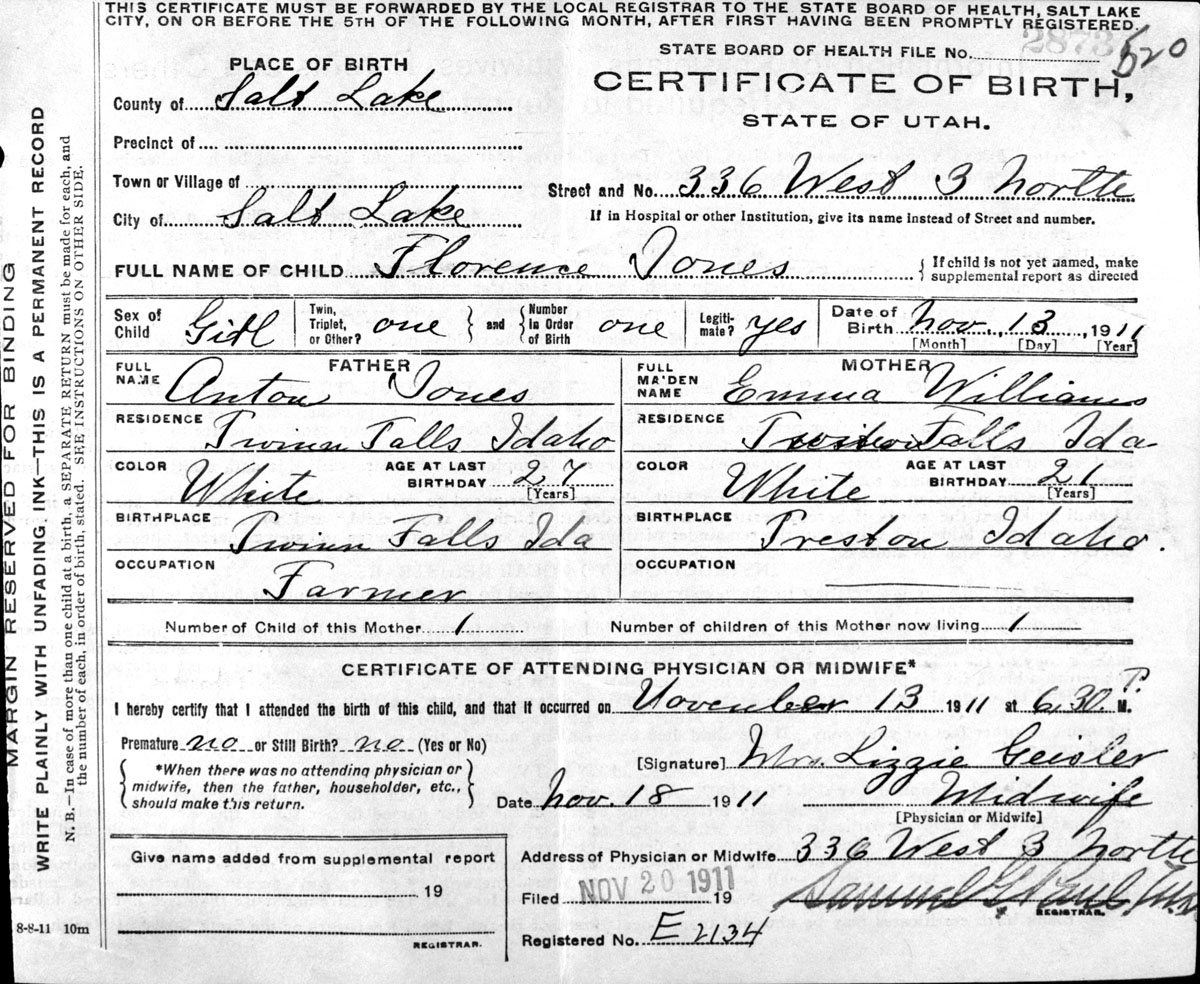 THIS CERTIFICATE MUST BE FORWARDED BY THE LOCAL REGISTRAR TO THE STATE BOARD OF HEALTH, SALT LAKE
CITY, ON OR BEFORE THE 5TH OF THE FOLLOWING MONTH, AFTER FIRST HAVING BEEN PROMPTLY REGISTERED.
STATE BOARD OF HEALTH FILE No. 2873 520
CERTIFICATE OF BIRTH,
STATE OF UTAH.
PLACE OF BIRTH
County of Salt Lake
Precinct of
Town or Village of
City of Salt Lake
Street and No. 336 West 3 North
If in Hospital or other Institution, give its name instead of Street and number.
FULL NAME OF CHILD Florence Jones
If child is not yet named, make
supplemental report as directed
Sex of Child Girl
Twin, Triplet, or Other? one
and Number in Order of Birth one
Legiti-mate? yes
Date of Birth Nov. 13, 1911
[Month] [Day] [Year]
FATHER
FULL NAME Anton Jones
RESIDENCE Twinn Falls Idaho
COLOR White
AGE AT LAST BIRTHDAY 27
[Years]
BIRTHPLACE Twinn Falls Ida
OCCUPATION Farmer
MOTHER
FULL MAIDEN NAME Emma Williams
RESIDENCE Falls Ida
COLOR White
AGE AT LAST BIRTHDAY 21
[Years]
BIRTHPLACE Preston Idaho.
OCCUPATION
Number of Child of this Mother 1
Number of children of this Mother now living 1
CERTIFICATE OF ATTENDING PHYSICIAN OR MIDWIFE*
I hereby certify that I attended the birth of this child, and that it occurred on November 13 1911 at 6.30. P. M.
Premature no or Still Birth? no (Yes or No)
*When there was no attending physician or
midwife, then the father, householder, etc.,
should make this return.
[Signature] Mrs. Lizzie Geisler
Date Nov. 18 1911 Midwife
[Physician or Midwife]
Give name added from supplemental report
19
REGISTRAR.
Address of Physician or Midwife 336 West 3 North
Filed NOV 20 1911 19
Samuel G. Paul
REGISTRAR.
Registered No. E 2134
8-8-11 10m
MARGIN RESERVED FOR BINDING
WRITE PLAINLY WITH UNFADING INK-THIS IS A PERMANENT RECORD
N. B.—In case of more than one child at a birth, a SEPARATE RETURN must be made for each, and
the number of each, in order of birth, stated. SEE INSTRUCTIONS ON OTHER SIDE.